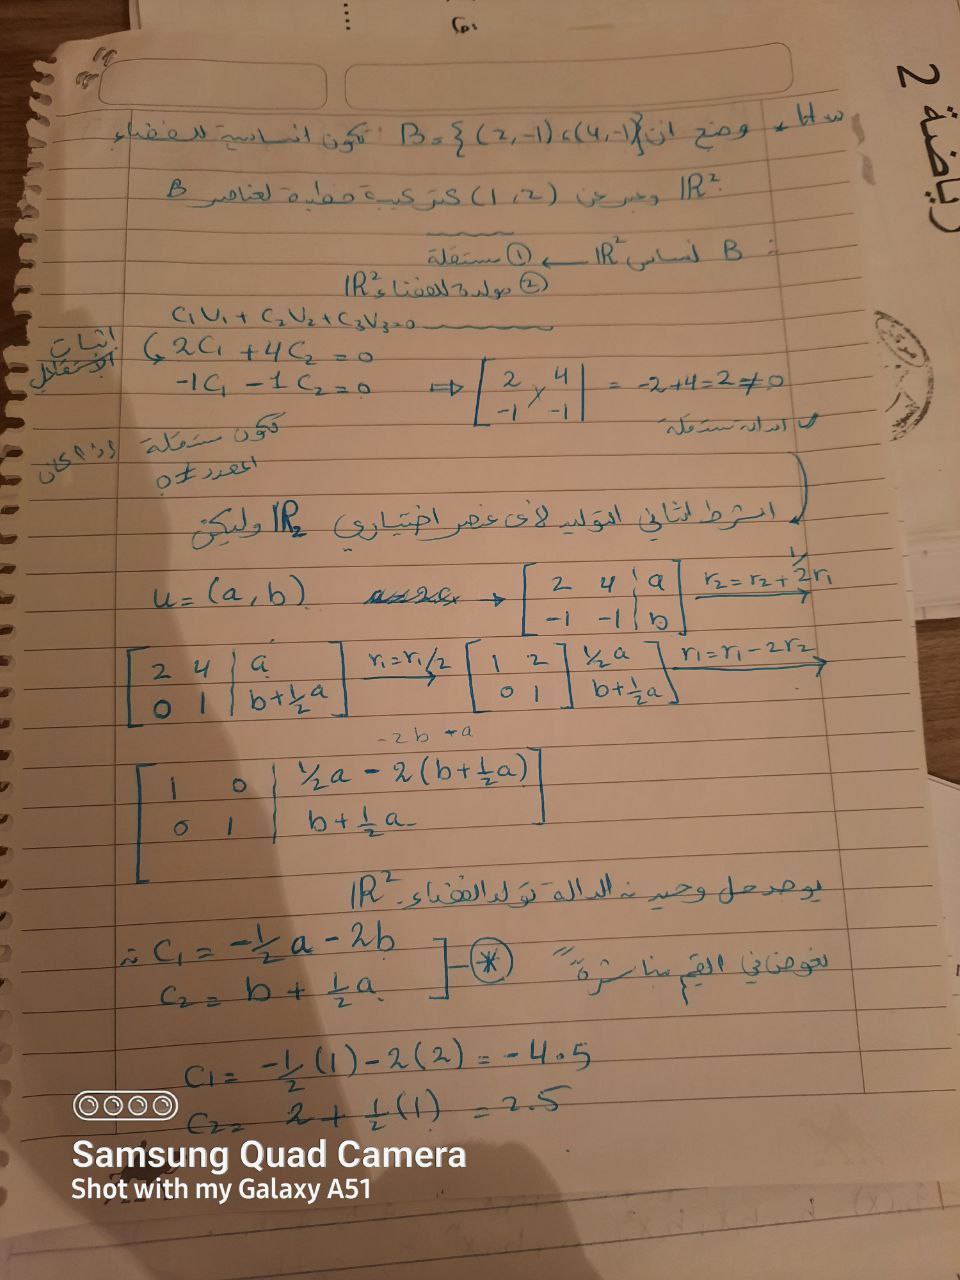 H.w * وضح ان B = {(2,-1), (4,-1)} تكون اساسية للفضاء
IR² وعبر عن (1,2) كتركيبة خطية لعناصر B
∵ B اساس IR² ← ① مستقلة
② مولدة للفضاء IR²
C₁V₁ + C₂V₂ + C₃V₃ = 0
اثبات الاستقلال
2C₁ + 4C₂ = 0
-1C₁ - 1C₂ = 0 ⇒ [2 4 | = -2+4=2≠0
-1 -1|
تكون مستقلة
المحدد ≠ 0
الشرط الثاني التوليد لاي عنصر اختياري IR₂ وليكن
u = (a, b) → [2 4 | a] r₂ = r₂ + 1/2 r₁
[-1 -1 | b]
[2 4 | a] r₁ = r₁/2 [1 2 | ½a] r₁ = r₁ - 2r₂
[0 1 | b+½a] [0 1 | b+½a]
-2b + a
[1 0 | ½a - 2(b+½a)]
[0 1 | b+½a]
يوجد حل وحيد ∴ الدالة تولد الفضاء IR²
∴ C₁ = -½a - 2b
C₂ = b + ½a ] - * نعوض في القيم مباشرة
C₁ = -½(1) - 2(2) = -4.5
C₂ = 2 + ½(1) = 2.5
Samsung Quad Camera
Shot with my Galaxy A51
رياضة 2